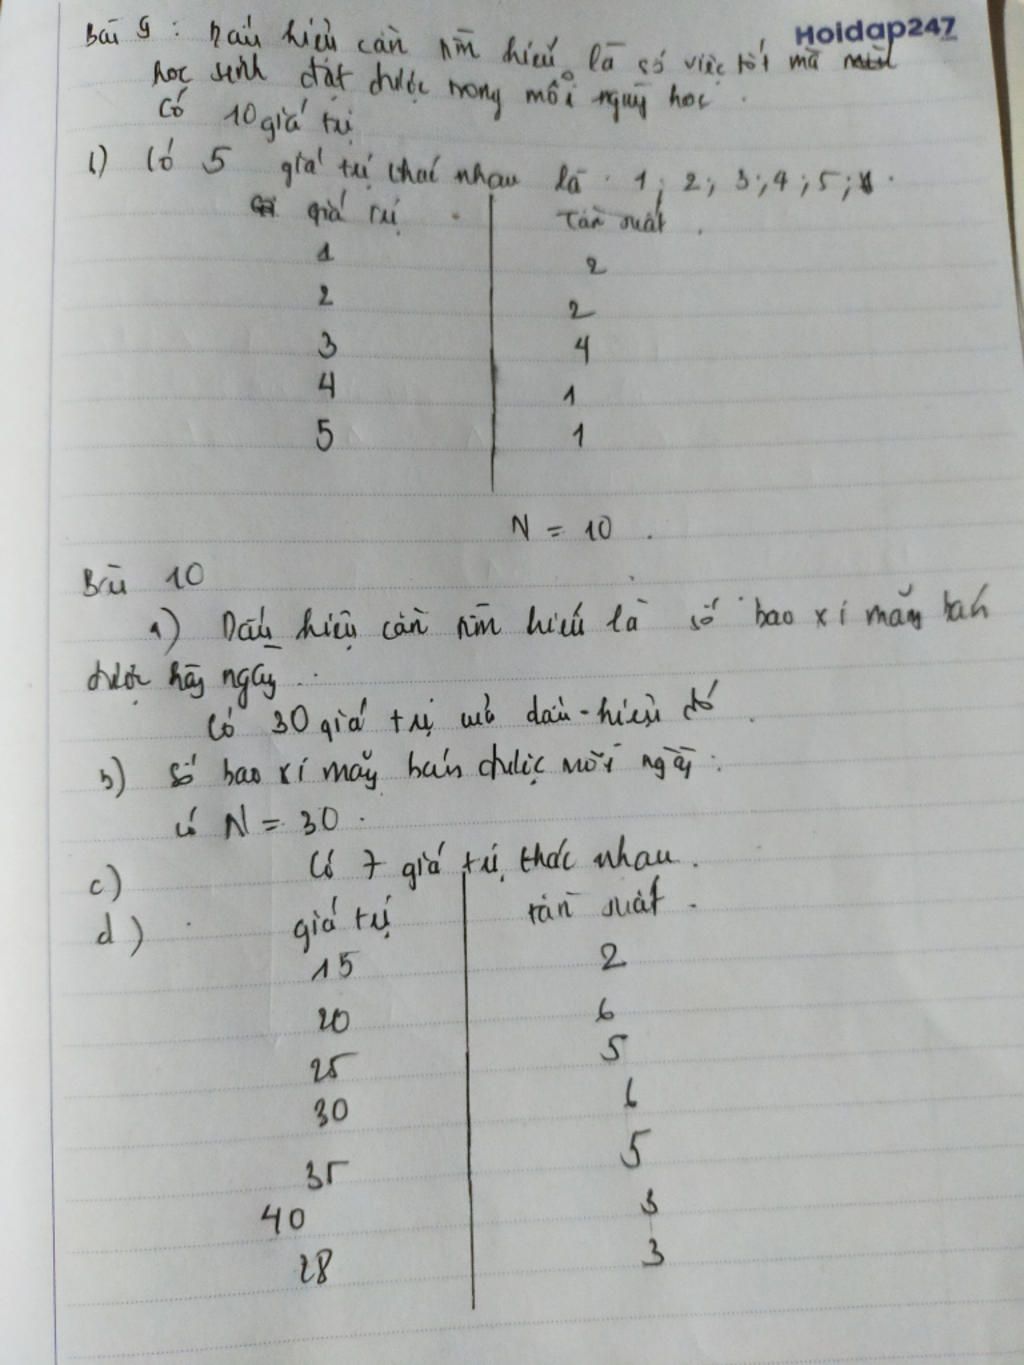 Holdap247
Bài 9 : Dấu hiệu cần tìm hiểu là số việc tốt mà
học sinh đạt được trong mỗi ngày học.
Có 10 giá trị
Có 5 giá trị khác nhau là . 1 ; 2 ; 3 ; 4 ; 5 ;
giá trị . Tần suất .
1 2
2 2
3 4
4 1
5 1
N = 10 .
Bài 10
a) Dấu hiệu cần tìm hiểu là số bao xi măng bán
được hằng ngày ..
Có 30 giá trị dấu hiệu đó .
b) Số bao xi măng bán được mỗi ngày :
có N = 30 .
c) Có 7 giá trị khác nhau .
d) giá trị tần suất .
15 2
20 6
25 5
30 6
35 5
40 3
28 3